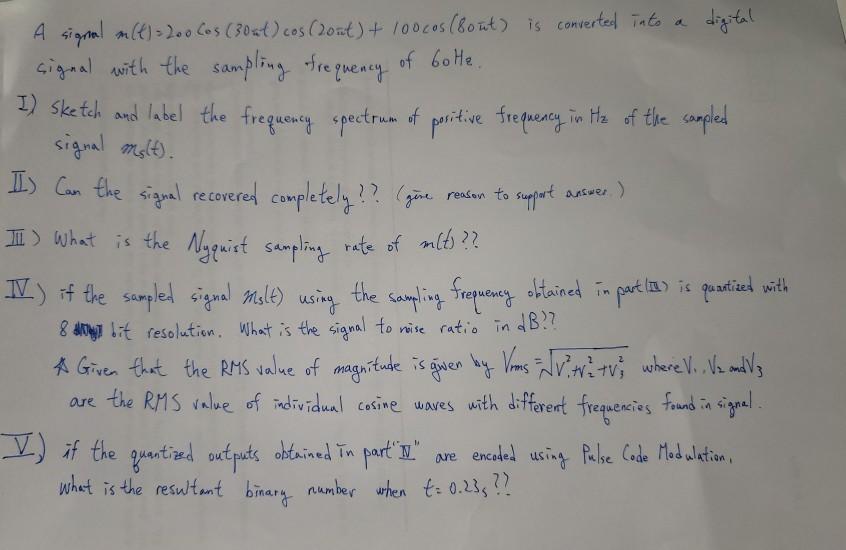 A signal m(t)=200 Cos (30πt) cos (20πt) + 100 cos (80πt) is converted into a digital
signal with the sampling frequency of 60Hz.
I) Sketch and label the frequency spectrum of positive frequency in Hz of the sampled
signal ms(t).
II) Can the signal recovered completely?? (give reason to support answer.)
III) What is the Nyquist sampling rate of m(t)??
IV) if the sampled signal Ms(t) using the sampling frequency obtained in part (III) is quantized with
8 bit resolution. What is the signal to noise ratio in dB??
Given that the RMS value of magnitude is given by Vrms = √V₁²+V₂²+V₃² where V₁, V₂ and V₃
are the RMS value of individual cosine waves with different frequencies found in signal.
V) if the quantized outputs obtained in part "IV" are encoded using Pulse Code Modulation,
What is the resultant binary number when t= 0.23s??